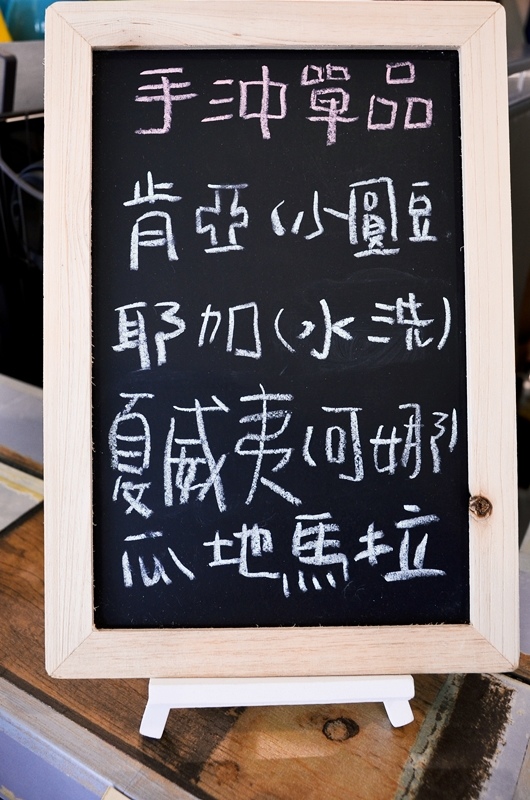 手沖單品
肯亞(小圓豆
耶加(水洗)
夏威夷(可娜)
瓜地馬拉